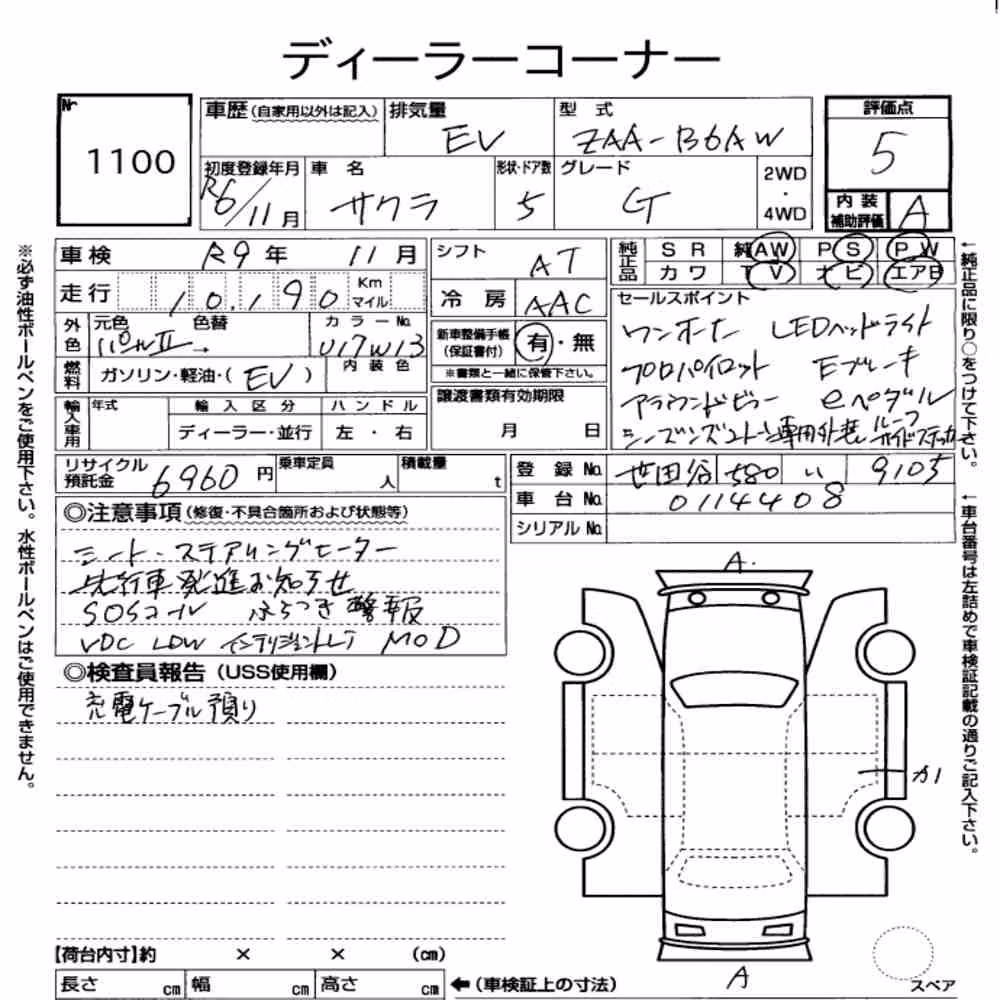 ディーラーコーナー
№
1100
車歴(自家用以外は記入)
排気量
EV
型 式
ZAA-B6AW
評価点
5
初度登録年月
R6/11月
車 名
サクラ
形状・ドア数
5
グレード
G
2WD
・
4WD
内 装
補助評価
A
車検 R9年 11月
走行 10,190 Km
マイル
外色
元色 色替
パールII →
カラー№
U17W13
燃料
ガソリン・軽油・( EV )
内 装 色
輸入車用
年式
輸 入 区 分
ディーラー・並行
ハ ン ド ル
左 ・ 右
シフト
AT
冷 房
AAC
新車整備手帳
(保証書付)
有・無
※書類と一緒に保管下さい。
譲渡書類有効期限
月 日
純正品
S R 純AW P S P W
カ ワ T V ナ ビ エアB
セールスポイント
ワンオーナー LEDヘッドライト
プロパイロット Eブレーキ
アラウンドビュー eペダル
シーズンズ2トーン専用外装
リサイクル
預託金
6960円
乗車定員
人
積載量
t
登 録 №
世田谷 580 い 9105
車 台 №
0114408
シリアル №
◎注意事項(修復・不具合箇所および状態等)
シート・ステアリングヒーター
先行車発進お知らせ
SOSコール ふらつき警報
VDC LDW インテリジェントLI MOD
◎検査員報告(USS使用欄)
充電ケーブル預り
A
カ1
A
スペア
【荷台内寸】約 × × (㎝)
長さ ㎝ 幅 ㎝ 高さ ㎝
←(車検証上の寸法)
※必ず油性ボールペンをご使用下さい。水性ボールペンはご使用できません。
←純正品に限り○をつけて下さい。
←車台番号は左詰めで車検証記載の通りご記入下さい。